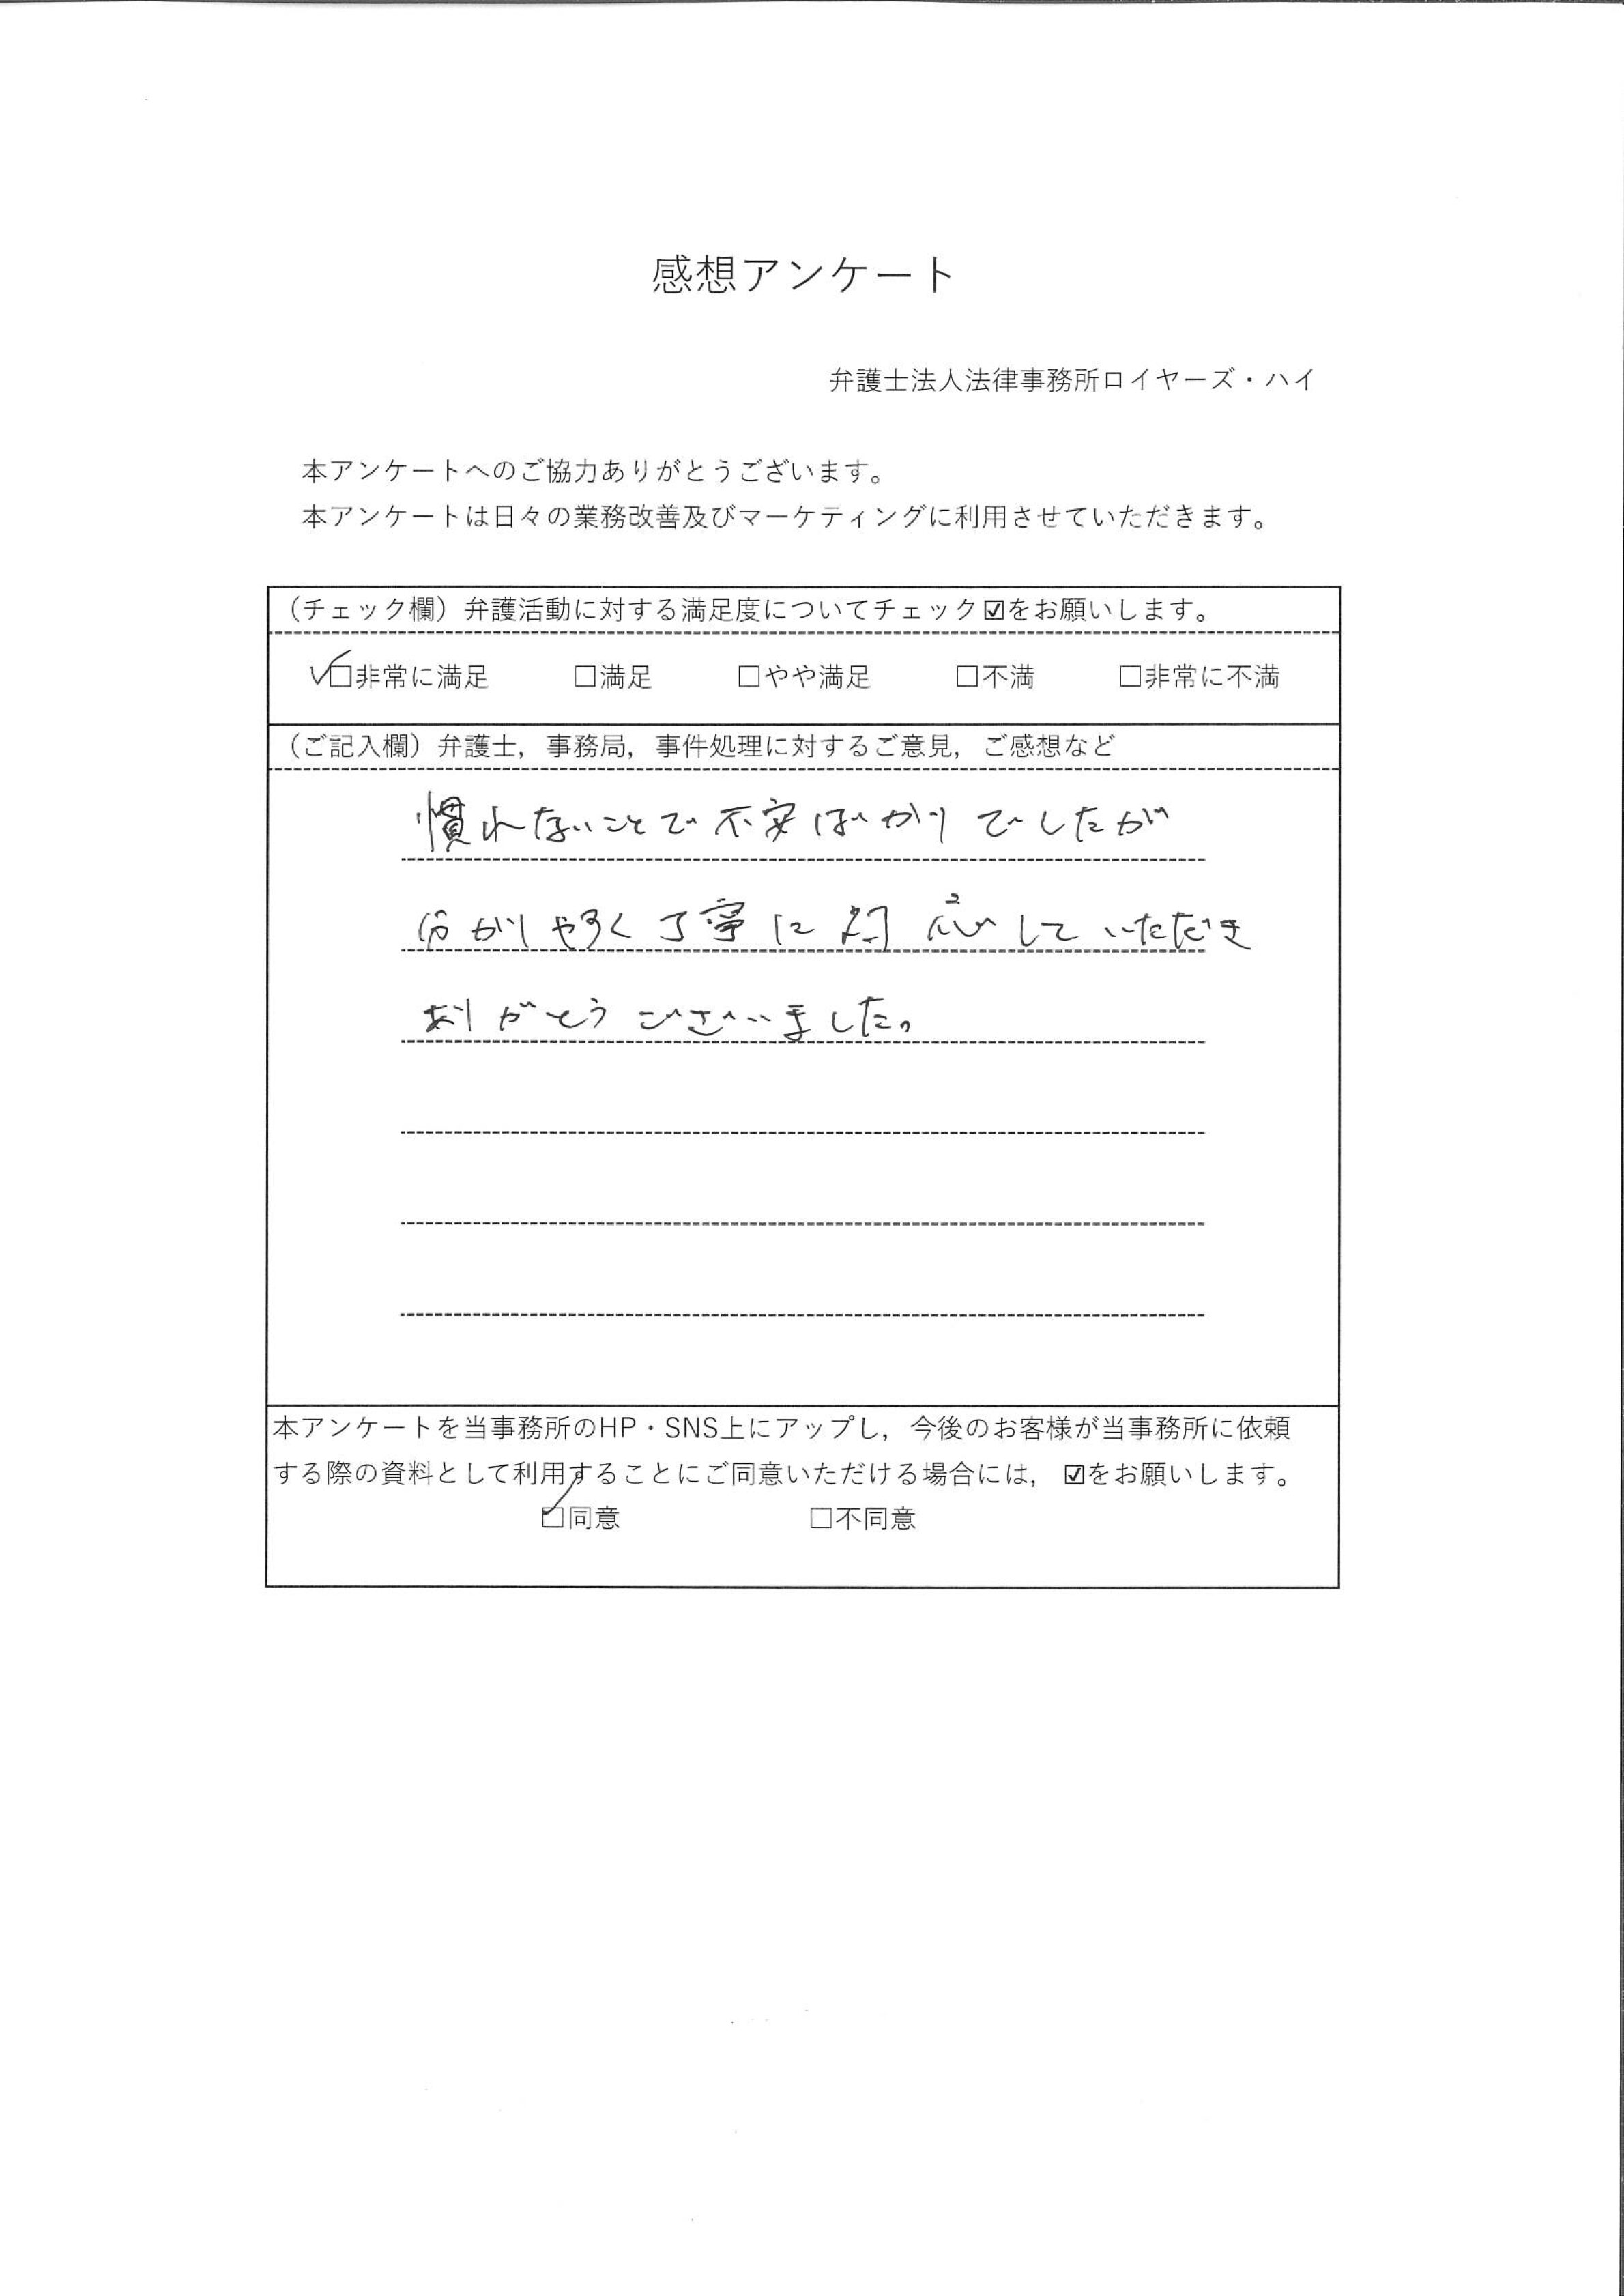 感想アンケート
弁護士法人法律事務所ロイヤーズ・ハイ
本アンケートへのご協力ありがとうございます。
本アンケートは日々の業務改善及びマーケティングに利用させていただきます。
（チェック欄）弁護活動に対する満足度についてチェック☑をお願いします。
☑非常に満足 □満足 □やや満足 □不満 □非常に不満
（ご記入欄）弁護士，事務局，事件処理に対するご意見，ご感想など
慣れないことで不安ばかりでしたが
分かりやすく丁寧に対応していただき
ありがとうございました。
本アンケートを当事務所のHP・SNS上にアップし，今後のお客様が当事務所に依頼
する際の資料として利用することにご同意いただける場合には，☑をお願いします。
☑同意 □不同意